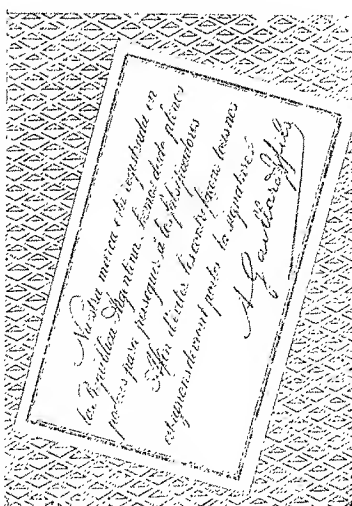 Nuestra marca está registrada en
la República Argentina. Hemos dado plenos
poderes para perseguir á los falsificadores
Afin d'éviter les contrefaçons toutes nos
devront porter la signature
A. Gautier